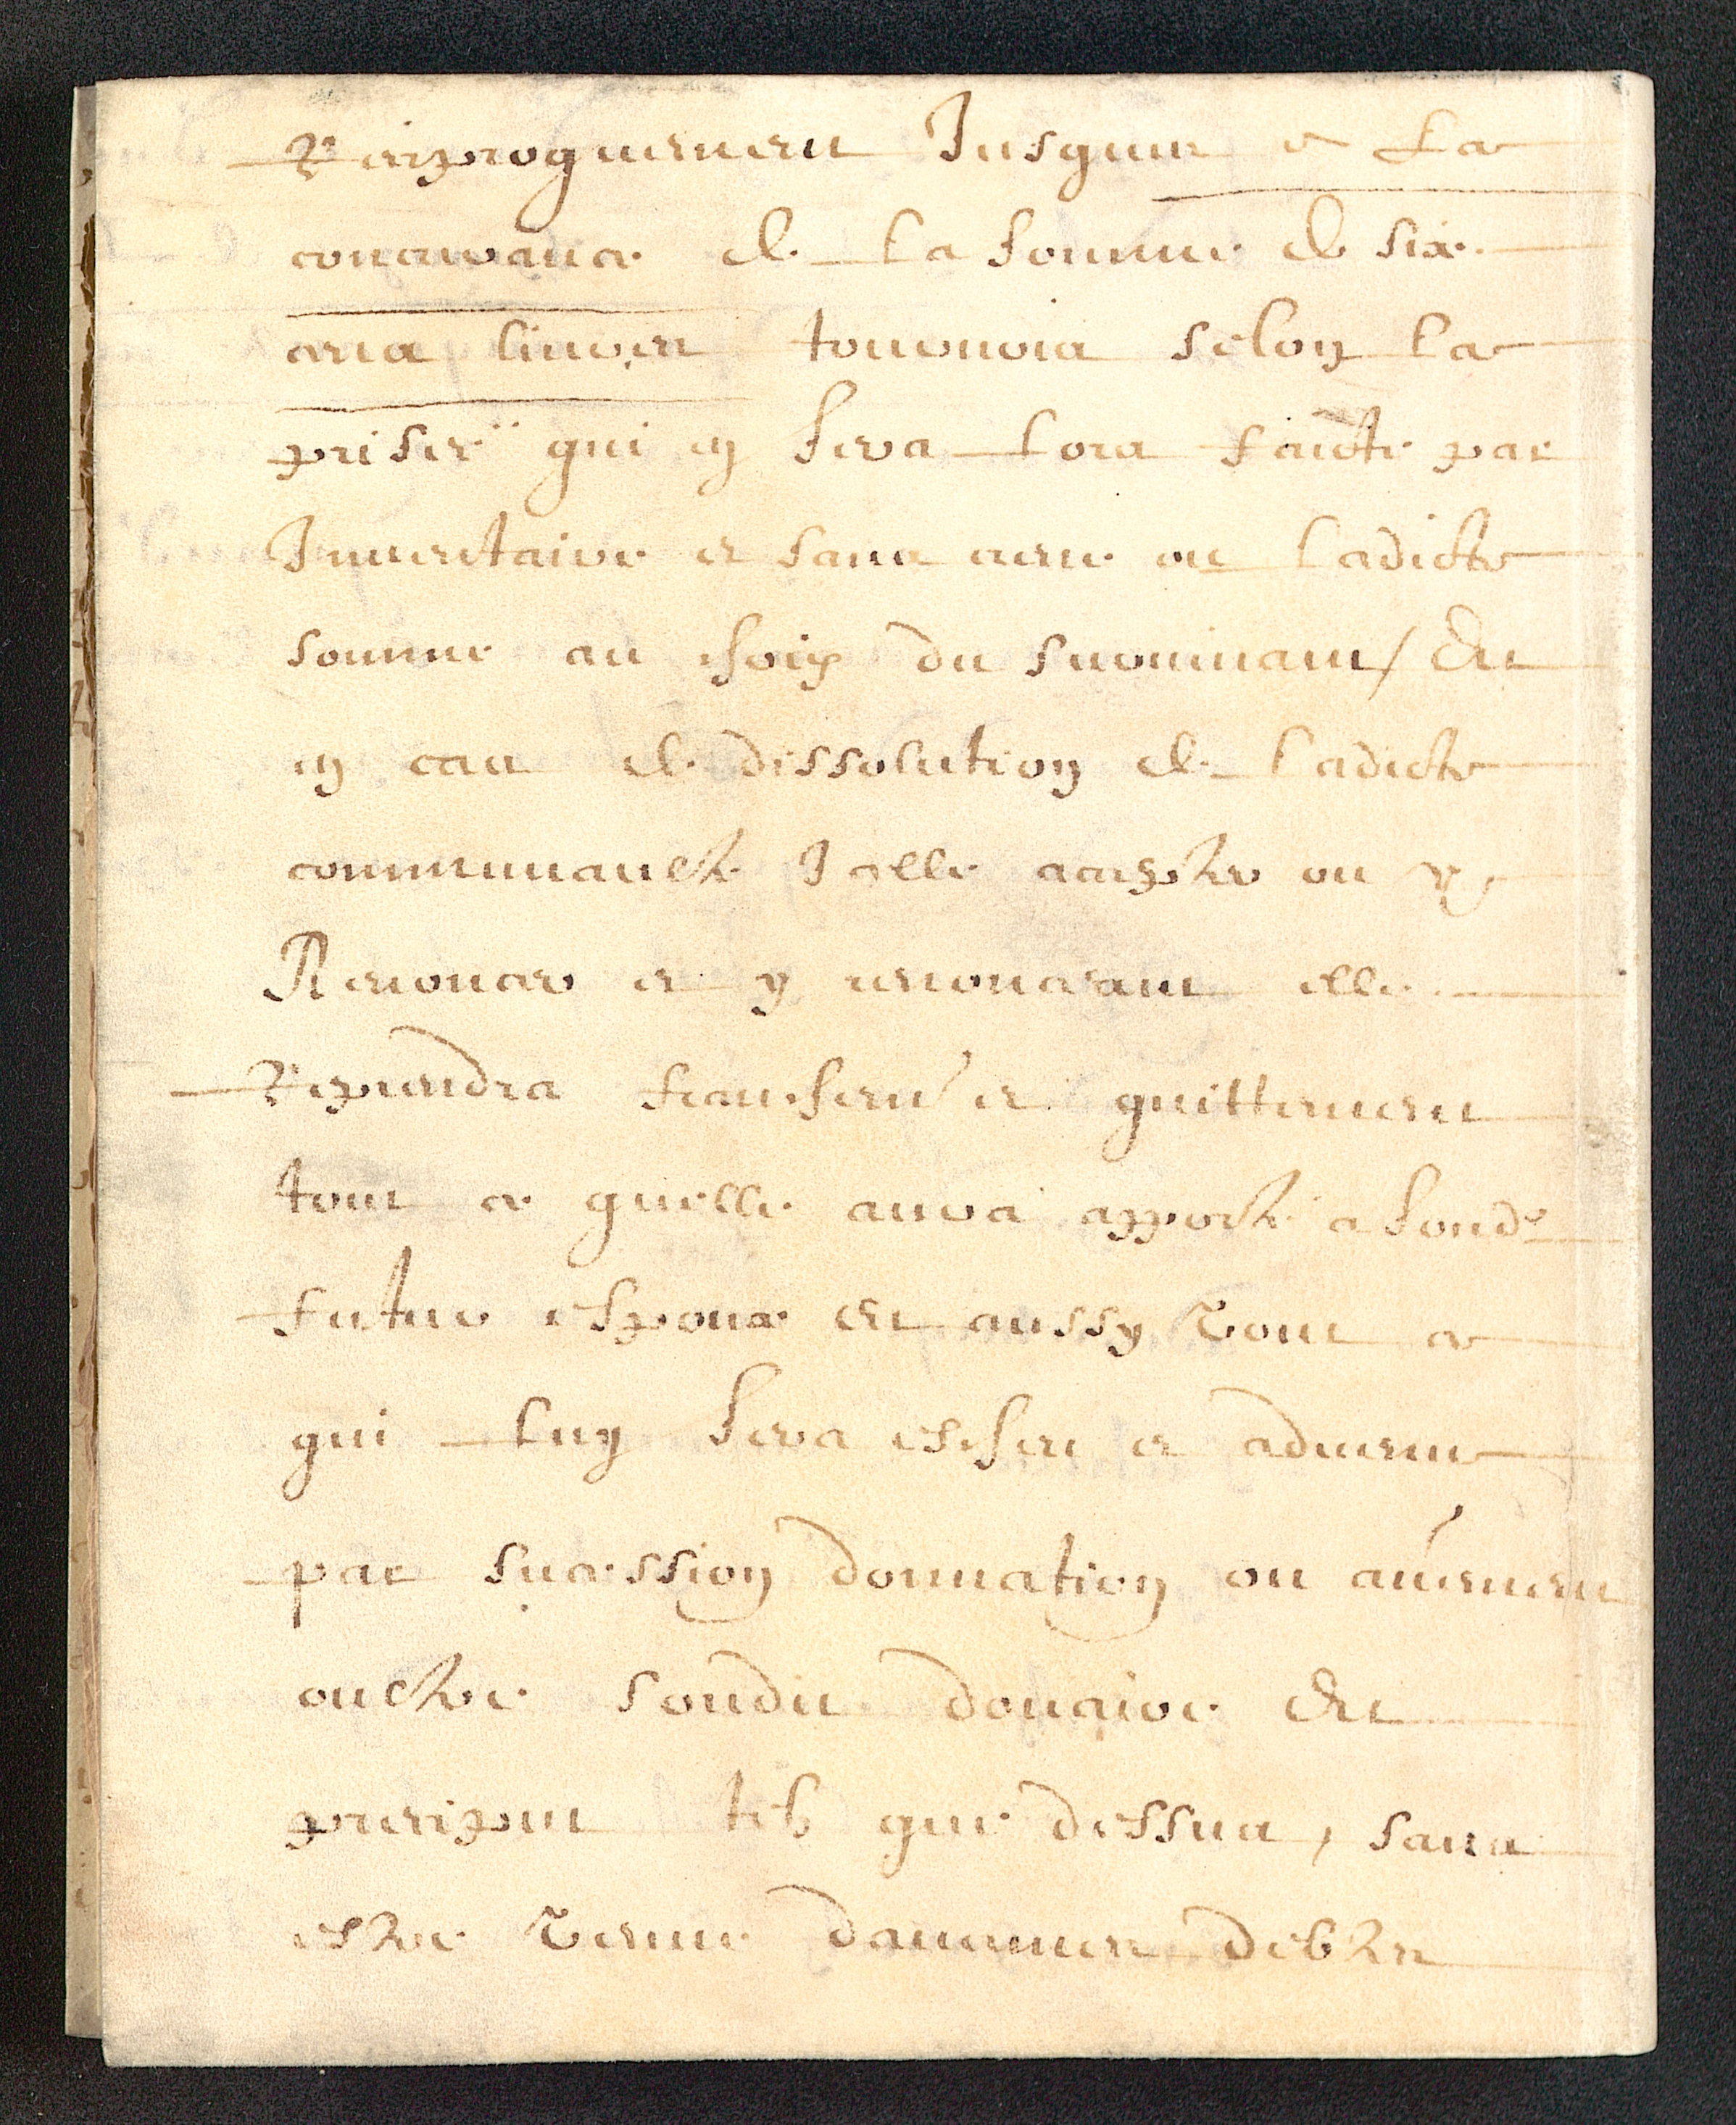 Reciproquement Jusques a La
concurance de la somme de six
cens livres tournois selon la
prisee qui en sera lors faicte par
Inventaire et sans crue ou ladicte
somme au choix du survivant / Et
en cas de dissolution de ladicte
communaulté Icelle accepter ou y
Renoncer et y renonceant elle
Reprendra franchem^t et quittement
tout ce quelle aura apporté a sond^t
futur espoux Et aussy tout ce
qui luy sera escheu et advenu
par succession donnation ou aũement
oultre sondit douaire Et
preciput tels que dessus, sans
estre tenue daucunes debtes